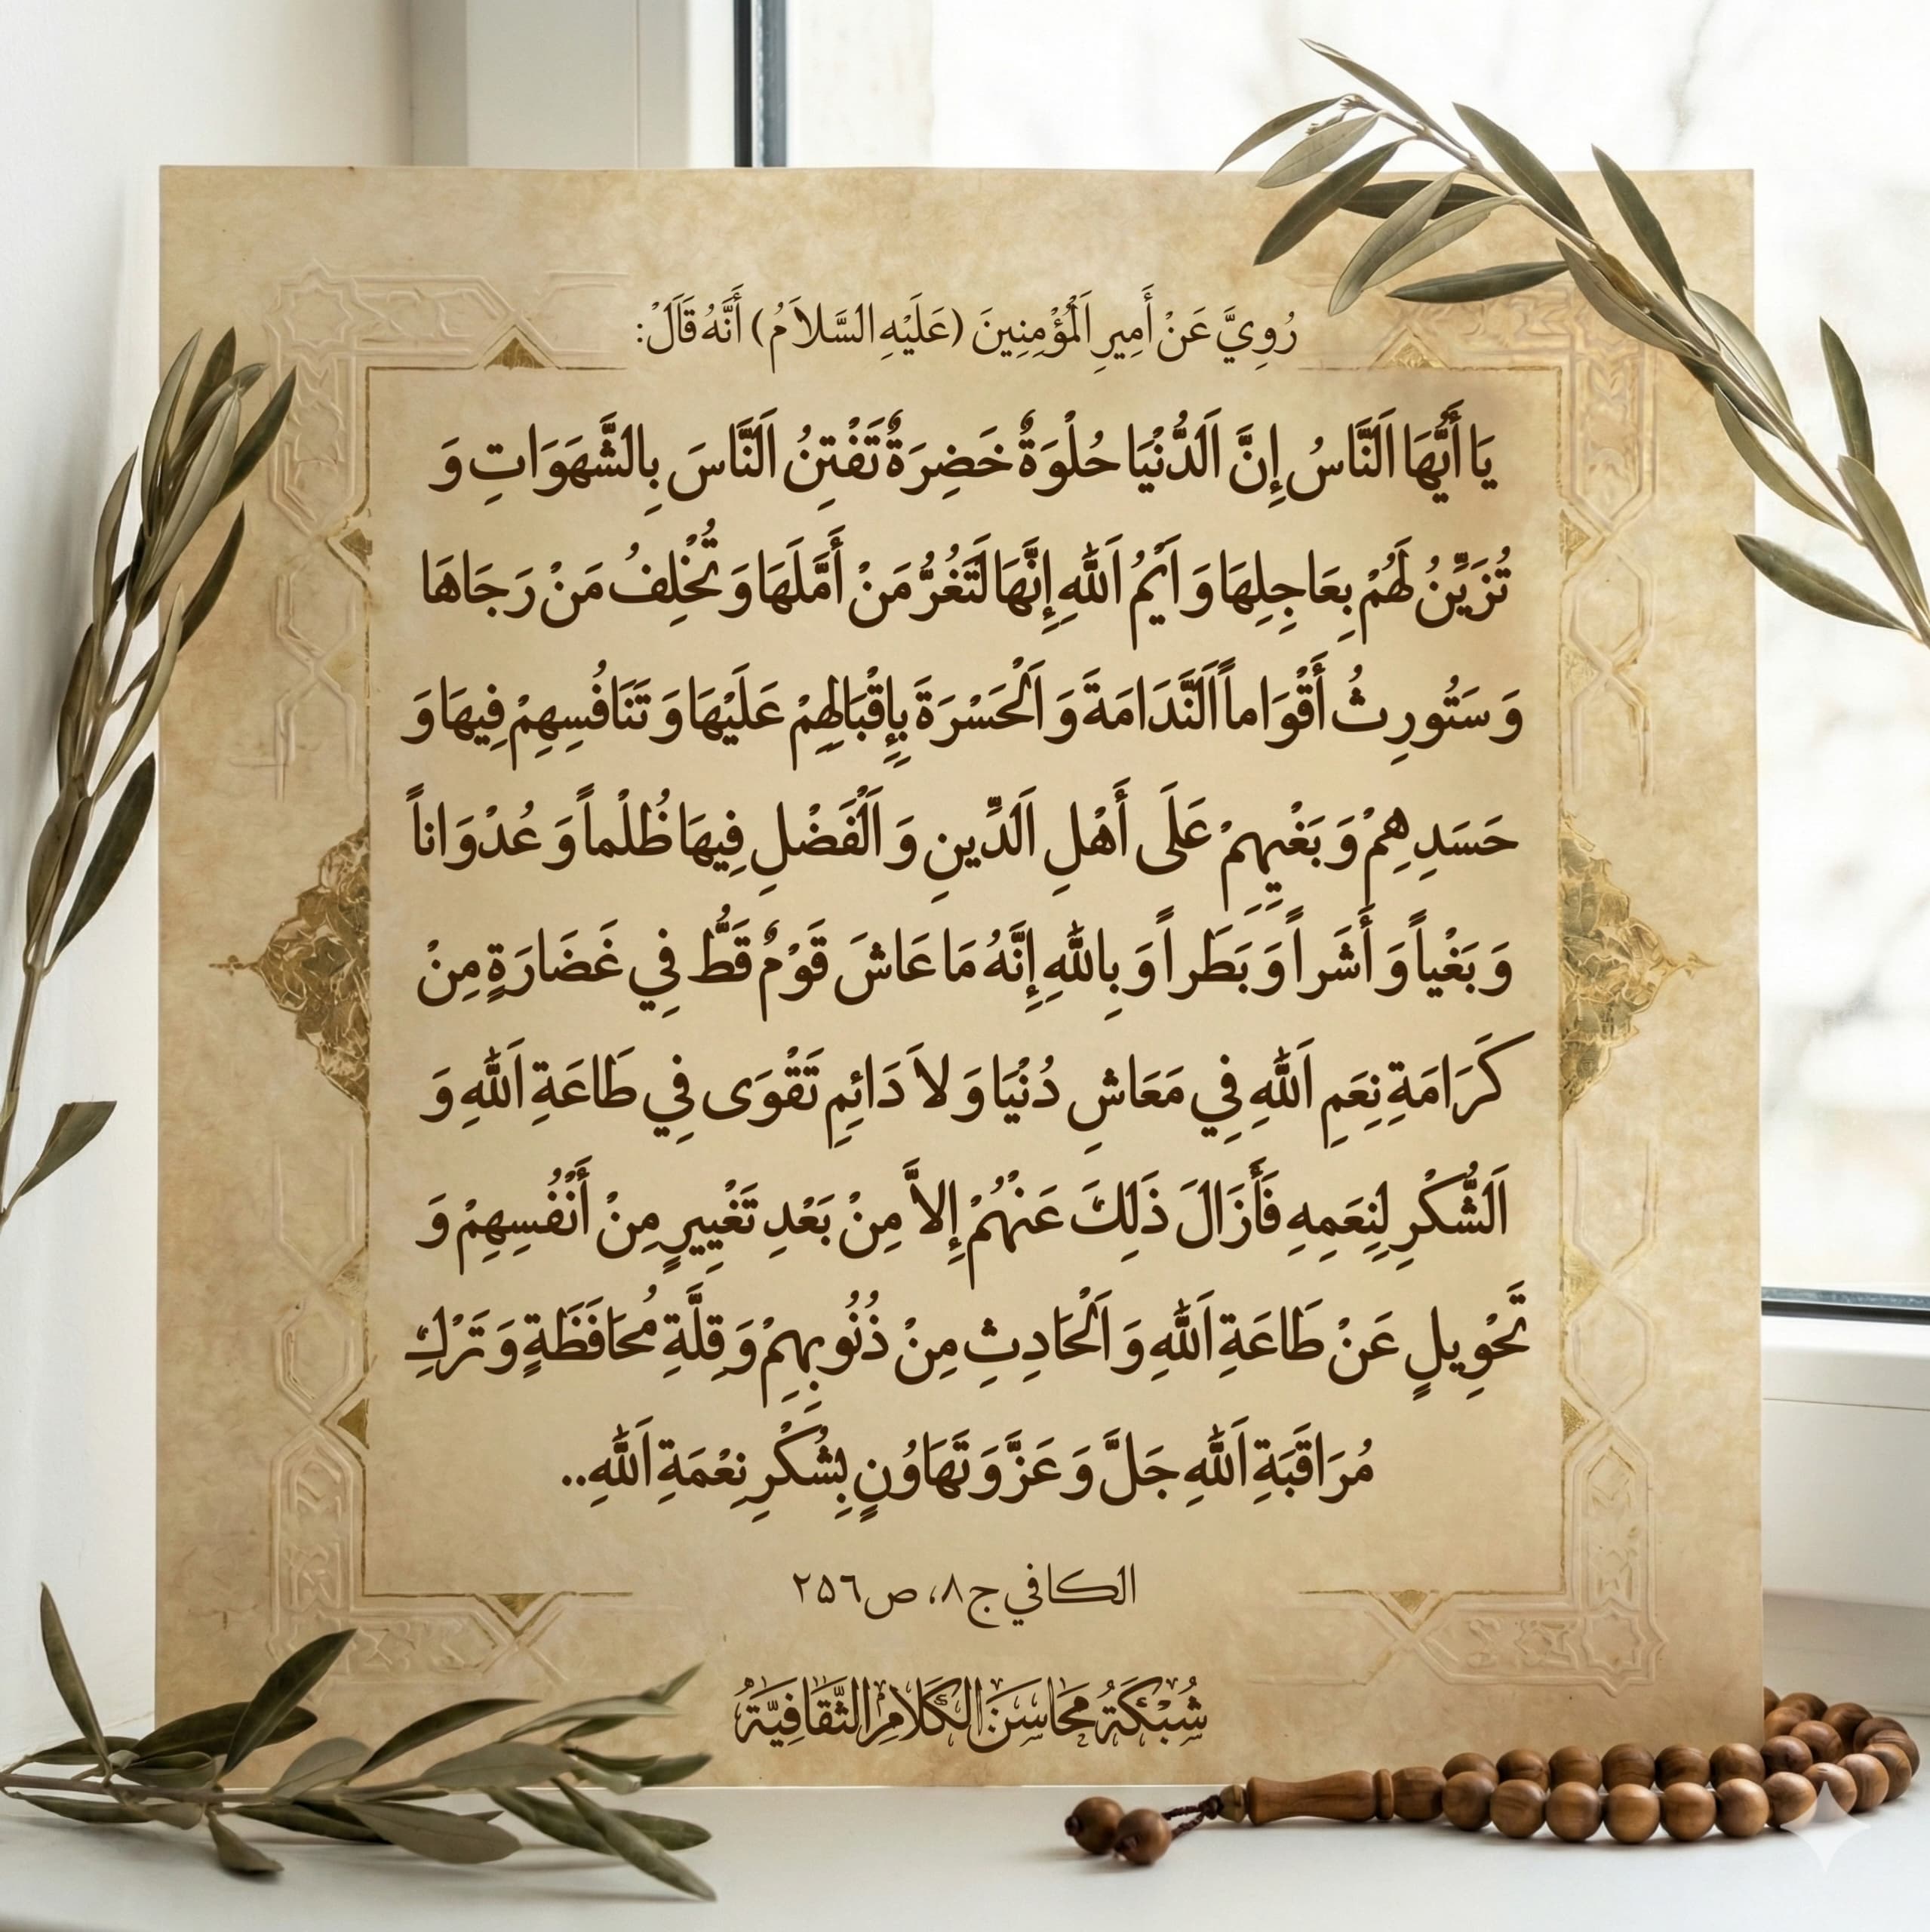 رُوِيَّ عَنْ أَمِيرِ اَلْمُؤْمِنِينَ (عَلَيْهِ السَّلاَمُ) أَنَّهُ قَالَ:
يَا أَيُّهَا اَلنَّاسُ إِنَّ اَلدُّنْيَا حُلْوَةٌ خَضِرَةٌ تَفْتِنُ اَلنَّاسَ بِالشَّهَوَاتِ وَ
تُزَيِّنُ لَهُمْ بِعَاجِلِهَا وَ اَيْمُ اَللَّهِ إِنَّهَا لَتَغُرُّ مَنْ أَمَّلَهَا وَ تُخْلِفُ مَنْ رَجَاهَا
وَ سَتُورِثُ أَقْوَاماً اَلنَّدَامَةَ وَ اَلْحَسْرَةَ بِإِقْبَالِهِمْ عَلَيْهَا وَ تَنَافُسِهِمْ فِيهَا وَ
حَسَدِهِمْ وَ بَغْيِهِمْ عَلَى أَهْلِ اَلدِّينِ وَ اَلْفَضْلِ فِيهَا ظُلْماً وَ عُدْوَاناً
وَ بَغْياً وَ أَشَراً وَ بَطَراً وَ بِاللَّهِ إِنَّهُ مَا عَاشَ قَوْمٌ قَطُّ فِي غَضَارَةٍ مِنْ
كَرَامَةِ نِعَمِ اَللَّهِ فِي مَعَاشِ دُنْيَا وَ لاَ دَائِمِ تَقْوَى فِي طَاعَةِ اَللَّهِ وَ
اَلشُّكْرِ لِنِعَمِهِ فَأَزَالَ ذَلِكَ عَنْهُمْ إِلاَّ مِنْ بَعْدِ تَغْيِيرٍ مِنْ أَنْفُسِهِمْ وَ
تَحْوِيلٍ عَنْ طَاعَةِ اَللَّهِ وَ اَلْحَادِثِ مِنْ ذُنُوبِهِمْ وَ قِلَّةِ مُحَافَظَةٍ وَ تَرْكِ
مُرَاقَبَةِ اَللَّهِ جَلَّ وَ عَزَّ وَ تَهَاوُنٍ بِشُكْرِ نِعْمَةِ اَللَّهِ..
الكافي ج٨، ص٢٥٦
شَبَكَةُ مَحَاسِنِ الكَلَامِ الثَّقَافِيَّةُ